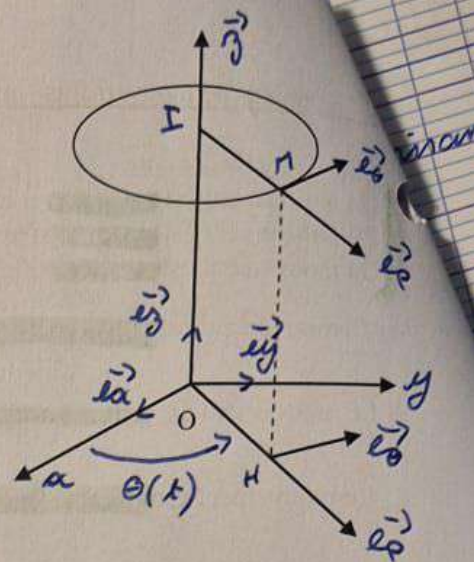 z⃗
I
M
e⃗θ
e⃗ρ
e⃗z
e⃗y
e⃗x
y
O
x
θ(t)
H
e⃗θ
e⃗ρ